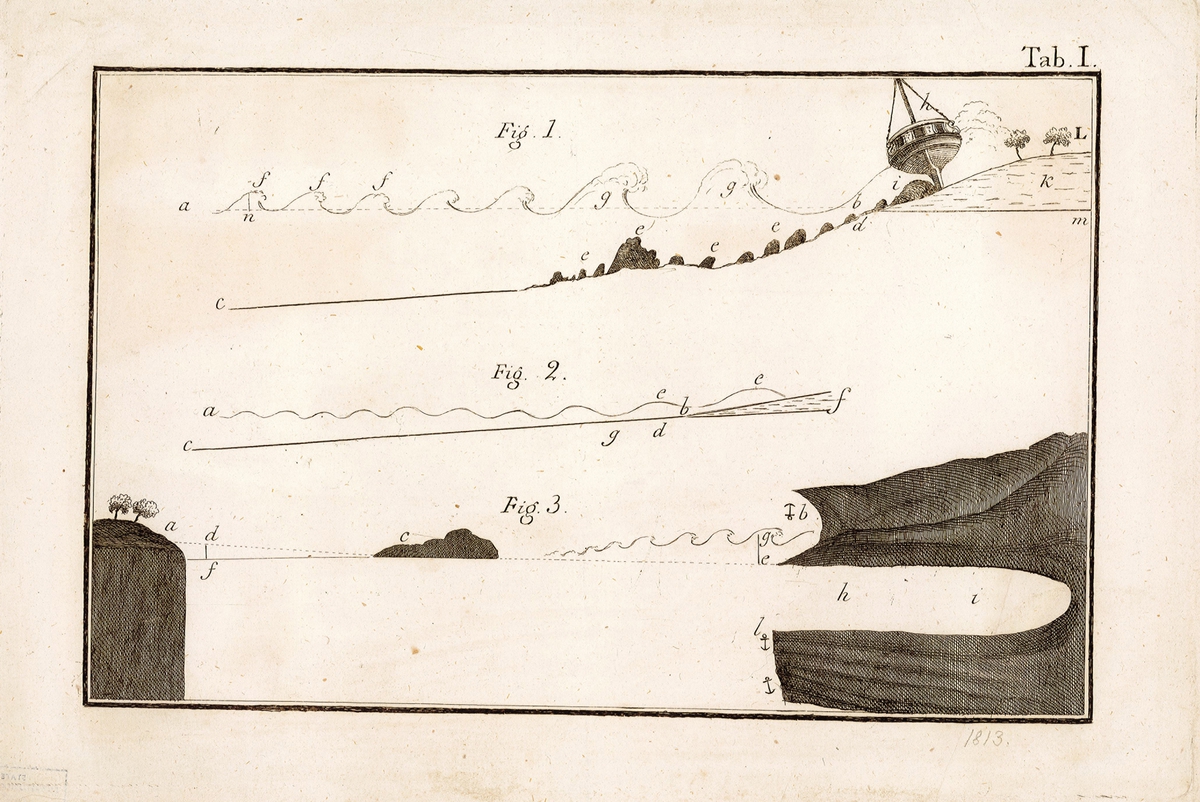 Tab. I.
Fig. 1.
h.
L
f f f
g g i k
a n b
d m
e e e e
c
Fig. 2.
e e
a b f
c g d
Fig. 3.
b
a d c g
f e
h i
l
1813.